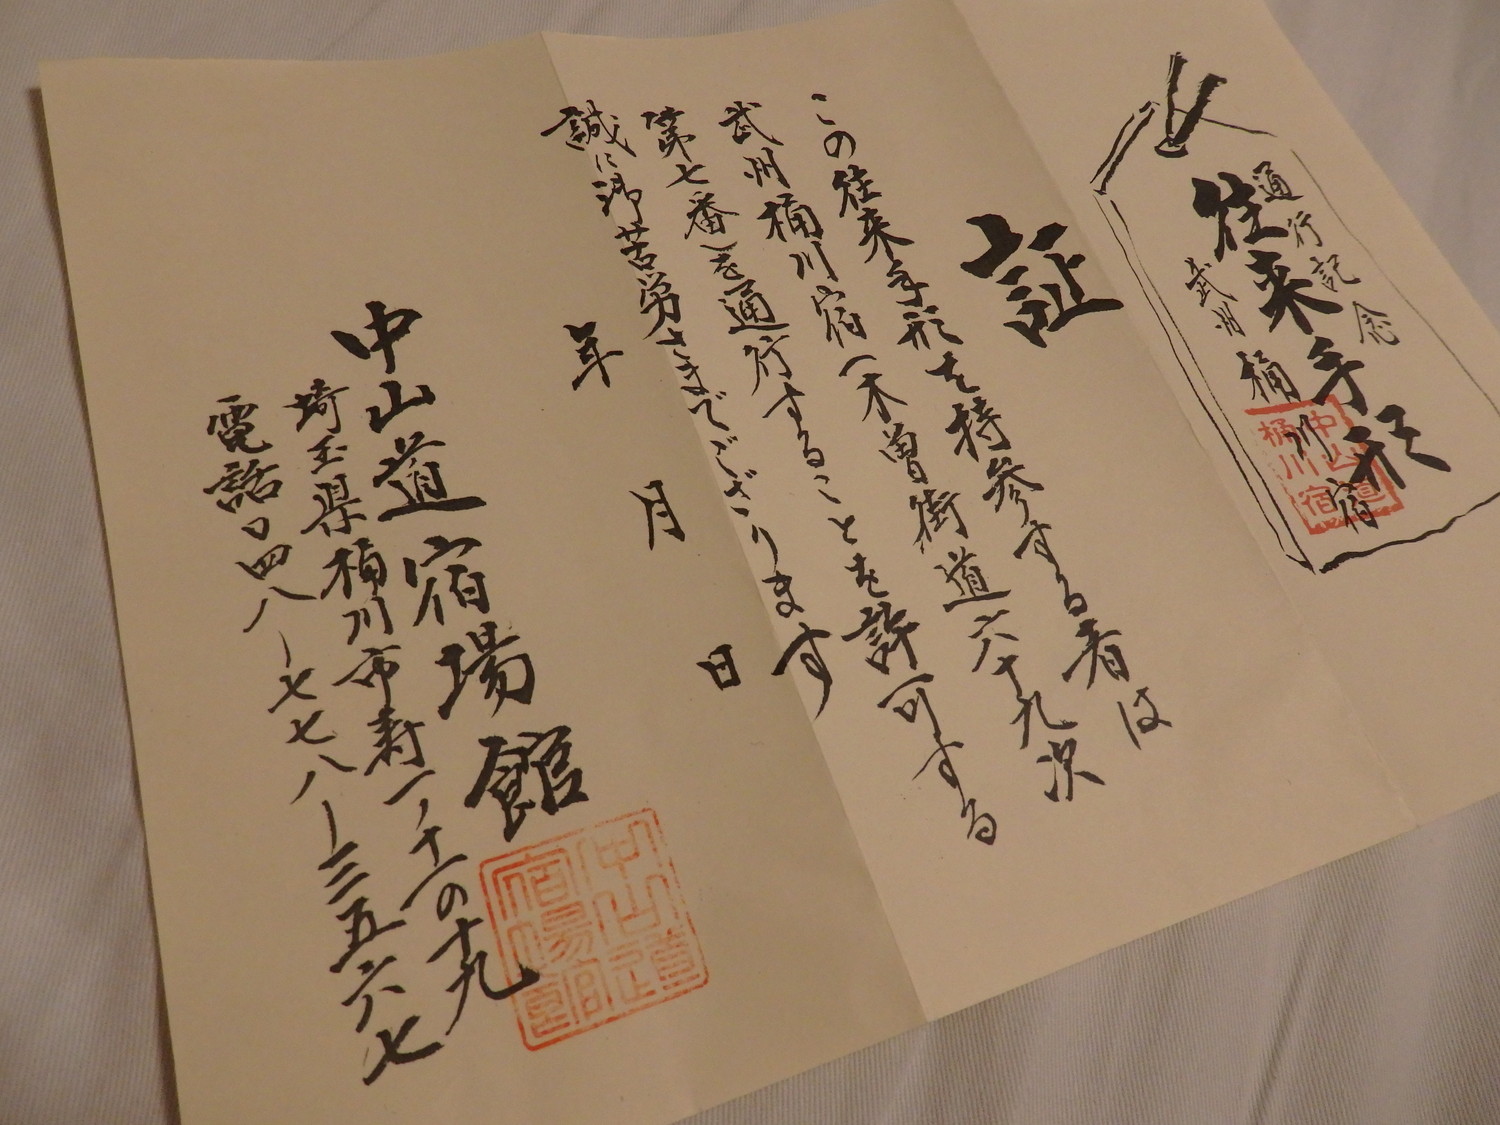 通行記念
往来手形
武州桶川宿
中山道
桶川宿
証
この往来手形を持参する者は
武州桶川宿(木曽街道六十九次
第七番)を通行することを許可する
誠に御苦労さまでございます
年 月 日
中山道宿場館
埼玉県桶川市寿一ノ十一の十九
電話〇四八-七七八-三五六七
中山道
宿場館